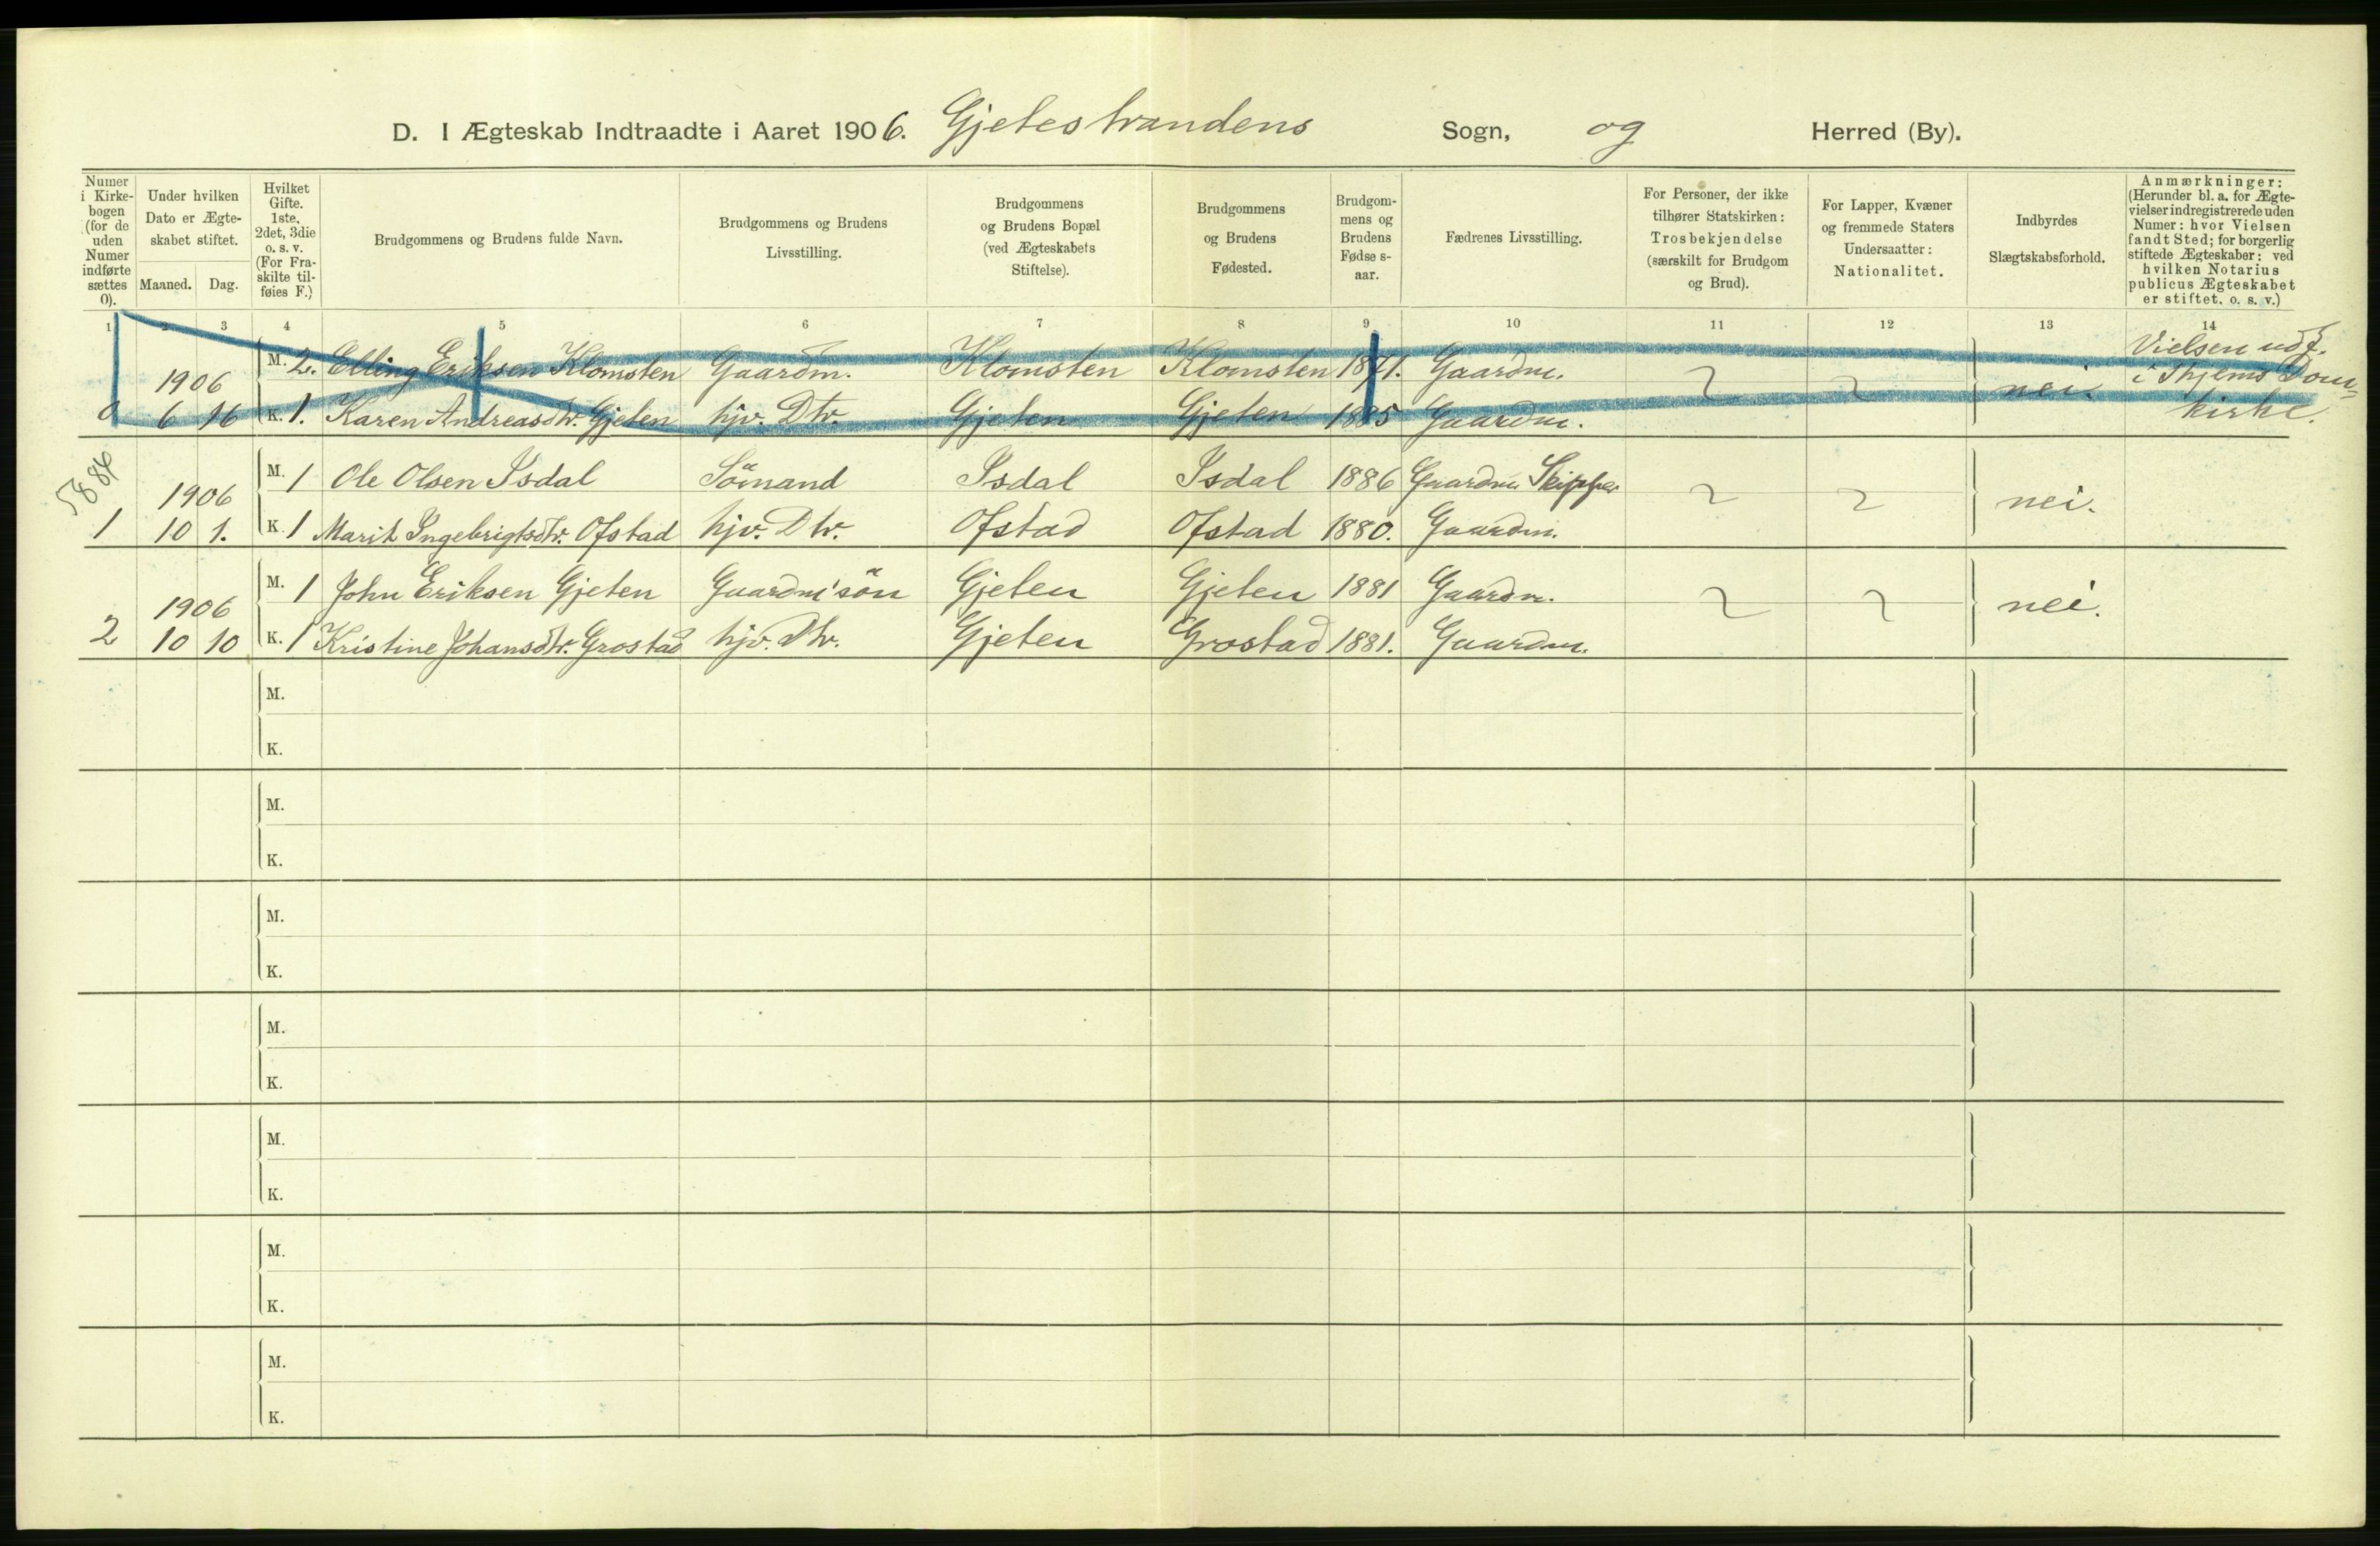 D. I Ægteskab Indtraadte i Aaret 1906. Gjetestrandens Sogn, og Herred (By).
Numer i Kirkebogen (for de uden Numer indførte sættes 0).
Under hvilken Dato er Ægteskabet stiftet.
Maaned. Dag.
Hvilket Gifte. 1ste, 2det, 3die o. s. v. (For Fraskilte tilføies F.)
Brudgommens og Brudens fulde Navn.
Brudgommens og Brudens Livsstilling.
Brudgommens og Brudens Bopæl (ved Ægteskabets Stiftelse).
Brudgommens og Brudens Fødested.
Brudgommens og Brudens Fødselsaar.
Fædrenes Livsstilling.
For Personer, der ikke tilhører Statskirken: Trosbekjendelse (særskilt for Brudgom og Brud).
For Lapper, Kvæner og fremmede Staters Undersaatter: Nationalitet.
Indbyrdes Slægtskabsforhold.
Anmærkninger: (Herunder bl. a. for Ægtevielser indregistrerede uden Numer: hvor Vielsen fandt Sted; for borgerlig stiftede Ægteskaber: ved hvilken Notarius publicus Ægteskabet er stiftet. o. s. v.)
1 2 3 4 5 6 7 8 9 10 11 12 13 14
1906 M. 2. Elling Eriksen Klomsten Gaardm. Klomsten Klomsten 1871. Gaardm. nei. Vielsen udf. i Thjems Domkirke.
0 6 16 K. 1. Karen Andreasdtr. Gjeten hjv. Dtr. Gjeten Gjeten 1885 Gaardm.
5886
1906 M. 1 Ole Olsen Isdal Sömand Isdal Isdal 1886 Gaardm. Skipper nei.
1 10 1. K. 1 Marit Ingebrigtsdtr. Ofstad hjv. Dtr. Ofstad Ofstad 1880. Gaardm.
1906 M. 1 John Eriksen Gjeten Gaardm'sön Gjeten Gjeten 1881 Gaardm. nei.
2 10 10 K. 1 Kristine Johansdtr. Grostad hjv. Dtr. Gjeten Grostad 1881. Gaardm.
M.
K.
M.
K.
M.
K.
M.
K.
M.
K.
M.
K.
M.
K.